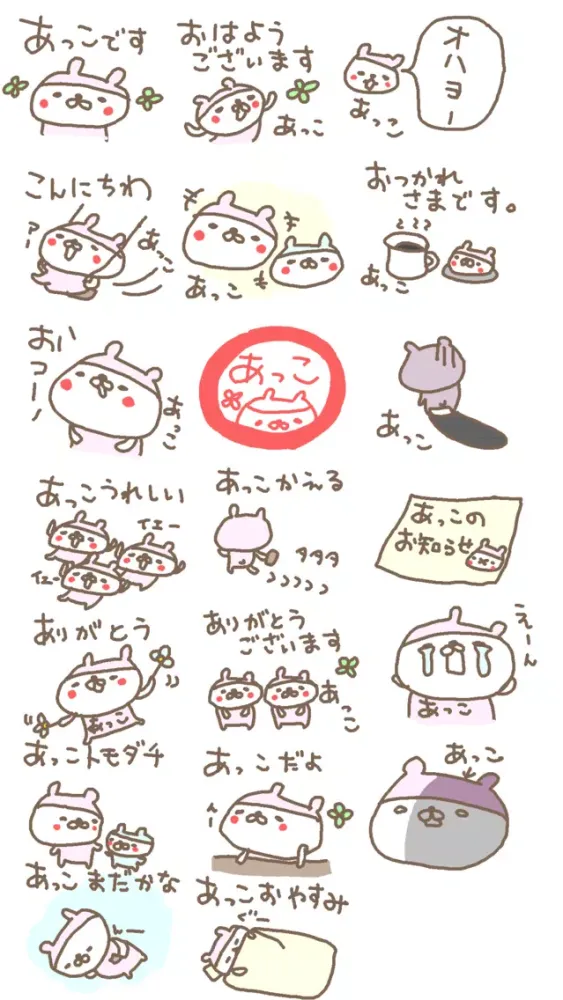 あっこです
おはよう
ございます
あっこ
オハヨー
あっこ
こんにちわ
あっこ
あっこ
おつかれ
さまです。
あっこ
おいっ
あっこ
あっこ
あっこ
あっこうれしい
イエー
イエー
あっこかえる
タタタ
あっこの
お知らせ
ありがとう
あっこ
ありがとう
ございます
あっこ
えーん
あっこ
あっこトモダチ
あっこだよ
あっこ
あっこまだかな
んー
あっこおやすみ
ぐー